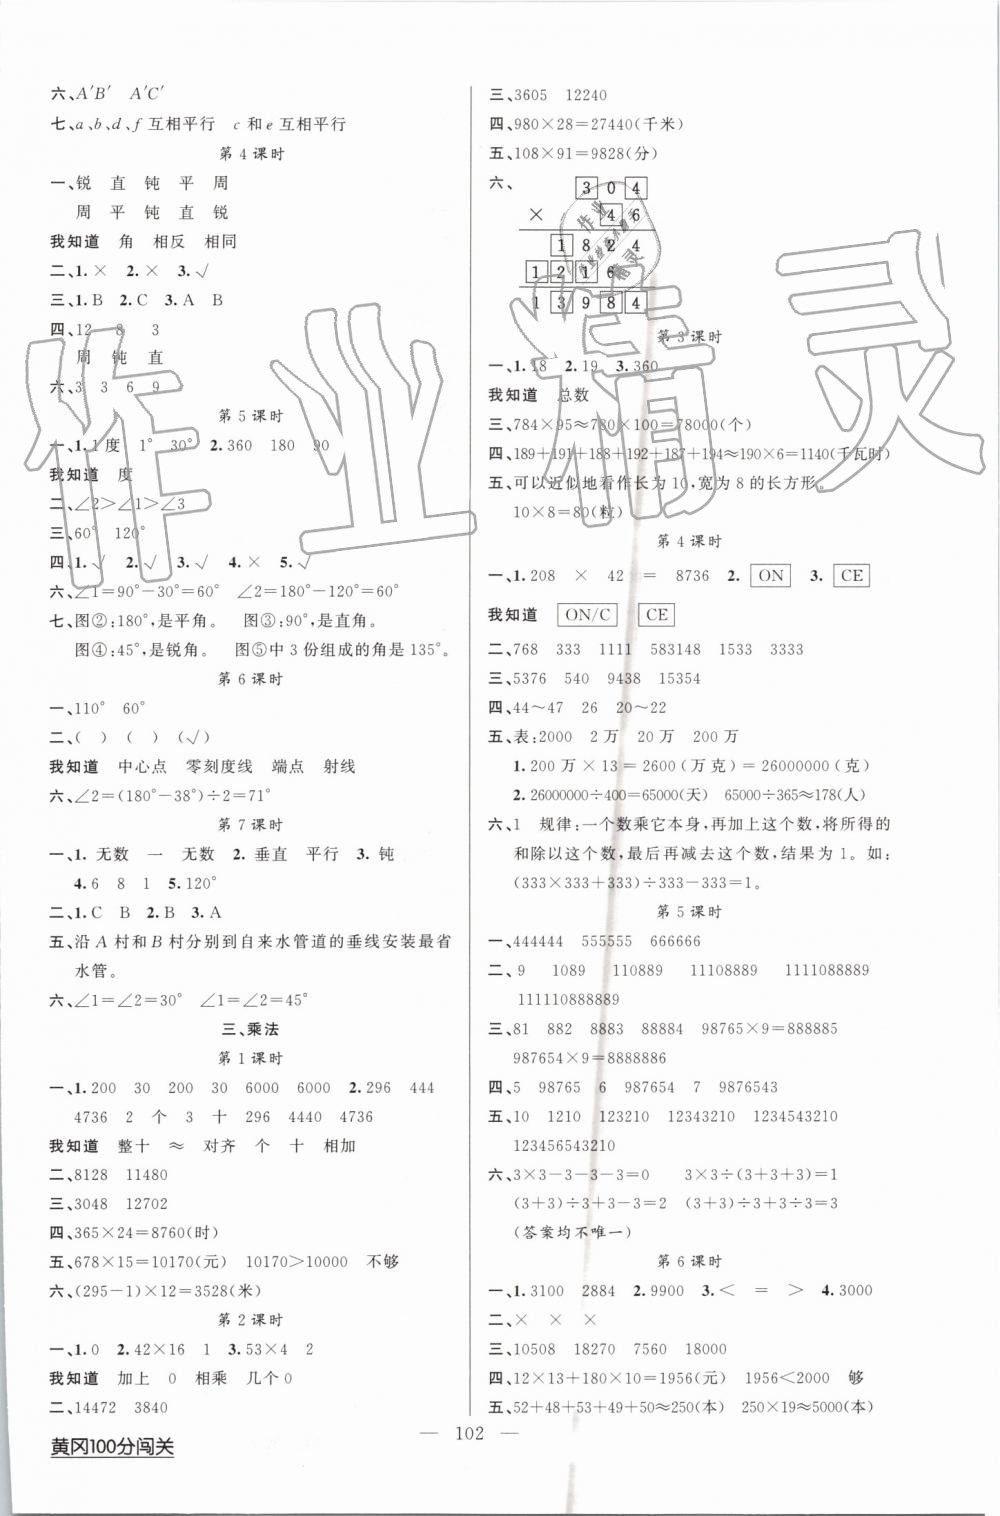 六、A′B′ A′C′
七、a、b、d、f 互相平行 c 和 e 互相平行
第 4 课时
一、锐 直 钝 平 周
周 平 钝 直 锐
我知道 角 相反 相同
二、1.× 2.× 3.√
三、1.B 2.C 3.A B
四、12 8 3
周 钝 直
六、3 3 6 9
第 5 课时
一、1.1度 1° 30° 2.360 180 90
我知道 度
二、∠2>∠1>∠3
三、60° 120°
四、1.√ 2.√ 3.√ 4.× 5.√
六、∠1=90°-30°=60° ∠2=180°-120°=60°
七、图②:180°,是平角。 图③:90°,是直角。
图④:45°,是锐角。 图⑤中 3 份组成的角是 135°。
第 6 课时
一、110° 60°
二、( ) ( ) (√)
我知道 中心点 零刻度线 端点 射线
六、∠2=(180°-38°)÷2=71°
第 7 课时
一、1.无数 一 无数 2.垂直 平行 3.钝
4.6 8 1 5.120°
二、1.C B 2.B 3.A
五、沿 A 村和 B 村分别到自来水管道的垂线安装最省
水管。
六、∠1=∠2=30° ∠1=∠2=45°
三、乘法
第 1 课时
一、1.200 30 200 30 6000 6000 2.296 444
4736 2 个 3 十 296 4440 4736
我知道 整十 ≈ 对齐 个 十 相加
二、8128 11480
三、3048 12702
四、365×24=8760(时)
五、678×15=10170(元) 10170>10000 不够
六、(295-1)×12=3528(米)
第 2 课时
一、1.0 2.42×16 1 3.53×4 2
我知道 加上 0 相乘 几个0
二、14472 3840
三、3605 12240
四、980×28=27440(千米)
五、108×91=9828(分)
六、 3 0 4
× 4 6
1 8 2 4
1 2 1 6
1 3 9 8 4
第 3 课时
一、1.18 2.19 3.360
我知道 总数
三、784×95≈780×100=78000(个)
四、189+191+188+192+187+194≈190×6=1140(千瓦时)
五、可以近似地看作长为 10,宽为 8 的长方形。
10×8=80(粒)
第 4 课时
一、1.208 × 42 = 8736 2.ON 3.CE
我知道 ON/C CE
二、768 333 1111 583148 1533 3333
三、5376 540 9438 15354
四、44～47 26 20～22
五、表:2000 2万 20万 200万
1.200万×13=2600(万克)=26000000(克)
2.26000000÷400=65000(天) 65000÷365≈178(人)
六、1 规律:一个数乘它本身,再加上这个数,将所得的
和除以这个数,最后再减去这个数,结果为 1。如:
(333×333+333)÷333-333=1。
第 5 课时
一、444444 555555 666666
二、9 1089 110889 11108889 1111088889
111110888889
三、81 882 8883 88884 98765×9=888885
987654×9=8888886
四、5 98765 6 987654 7 9876543
五、10 1210 123210 12343210 1234543210
123456543210
六、3×3-3-3-3=0 3×3÷(3+3+3)=1
(3+3)÷3+3-3=2 (3+3+3)÷3+3÷3=3
(答案均不唯一)
第 6 课时
一、1.3100 2884 2.9900 3.< = > 4.3000
二、× × ×
三、10508 18020 7560 18000
四、12×13+180×10=1956(元) 1956<2000 够
五、52+48+53+49+52≈250(本) 250×19≈5000(本)
— 102 —
黄冈100分闯关
作业精灵